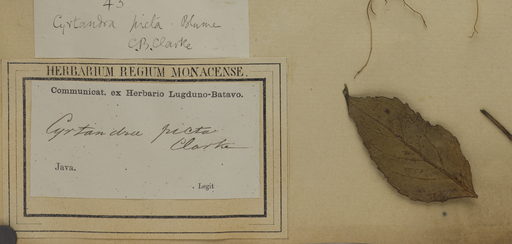 43
Cyrtandra picta Blume
C.B. Clarke
HERBARIUM REGIUM MONACENSE.
Communicat. ex Herbario Lugduno-Batavo.
Cyrtandra picta
Clarke
Java.
Legit